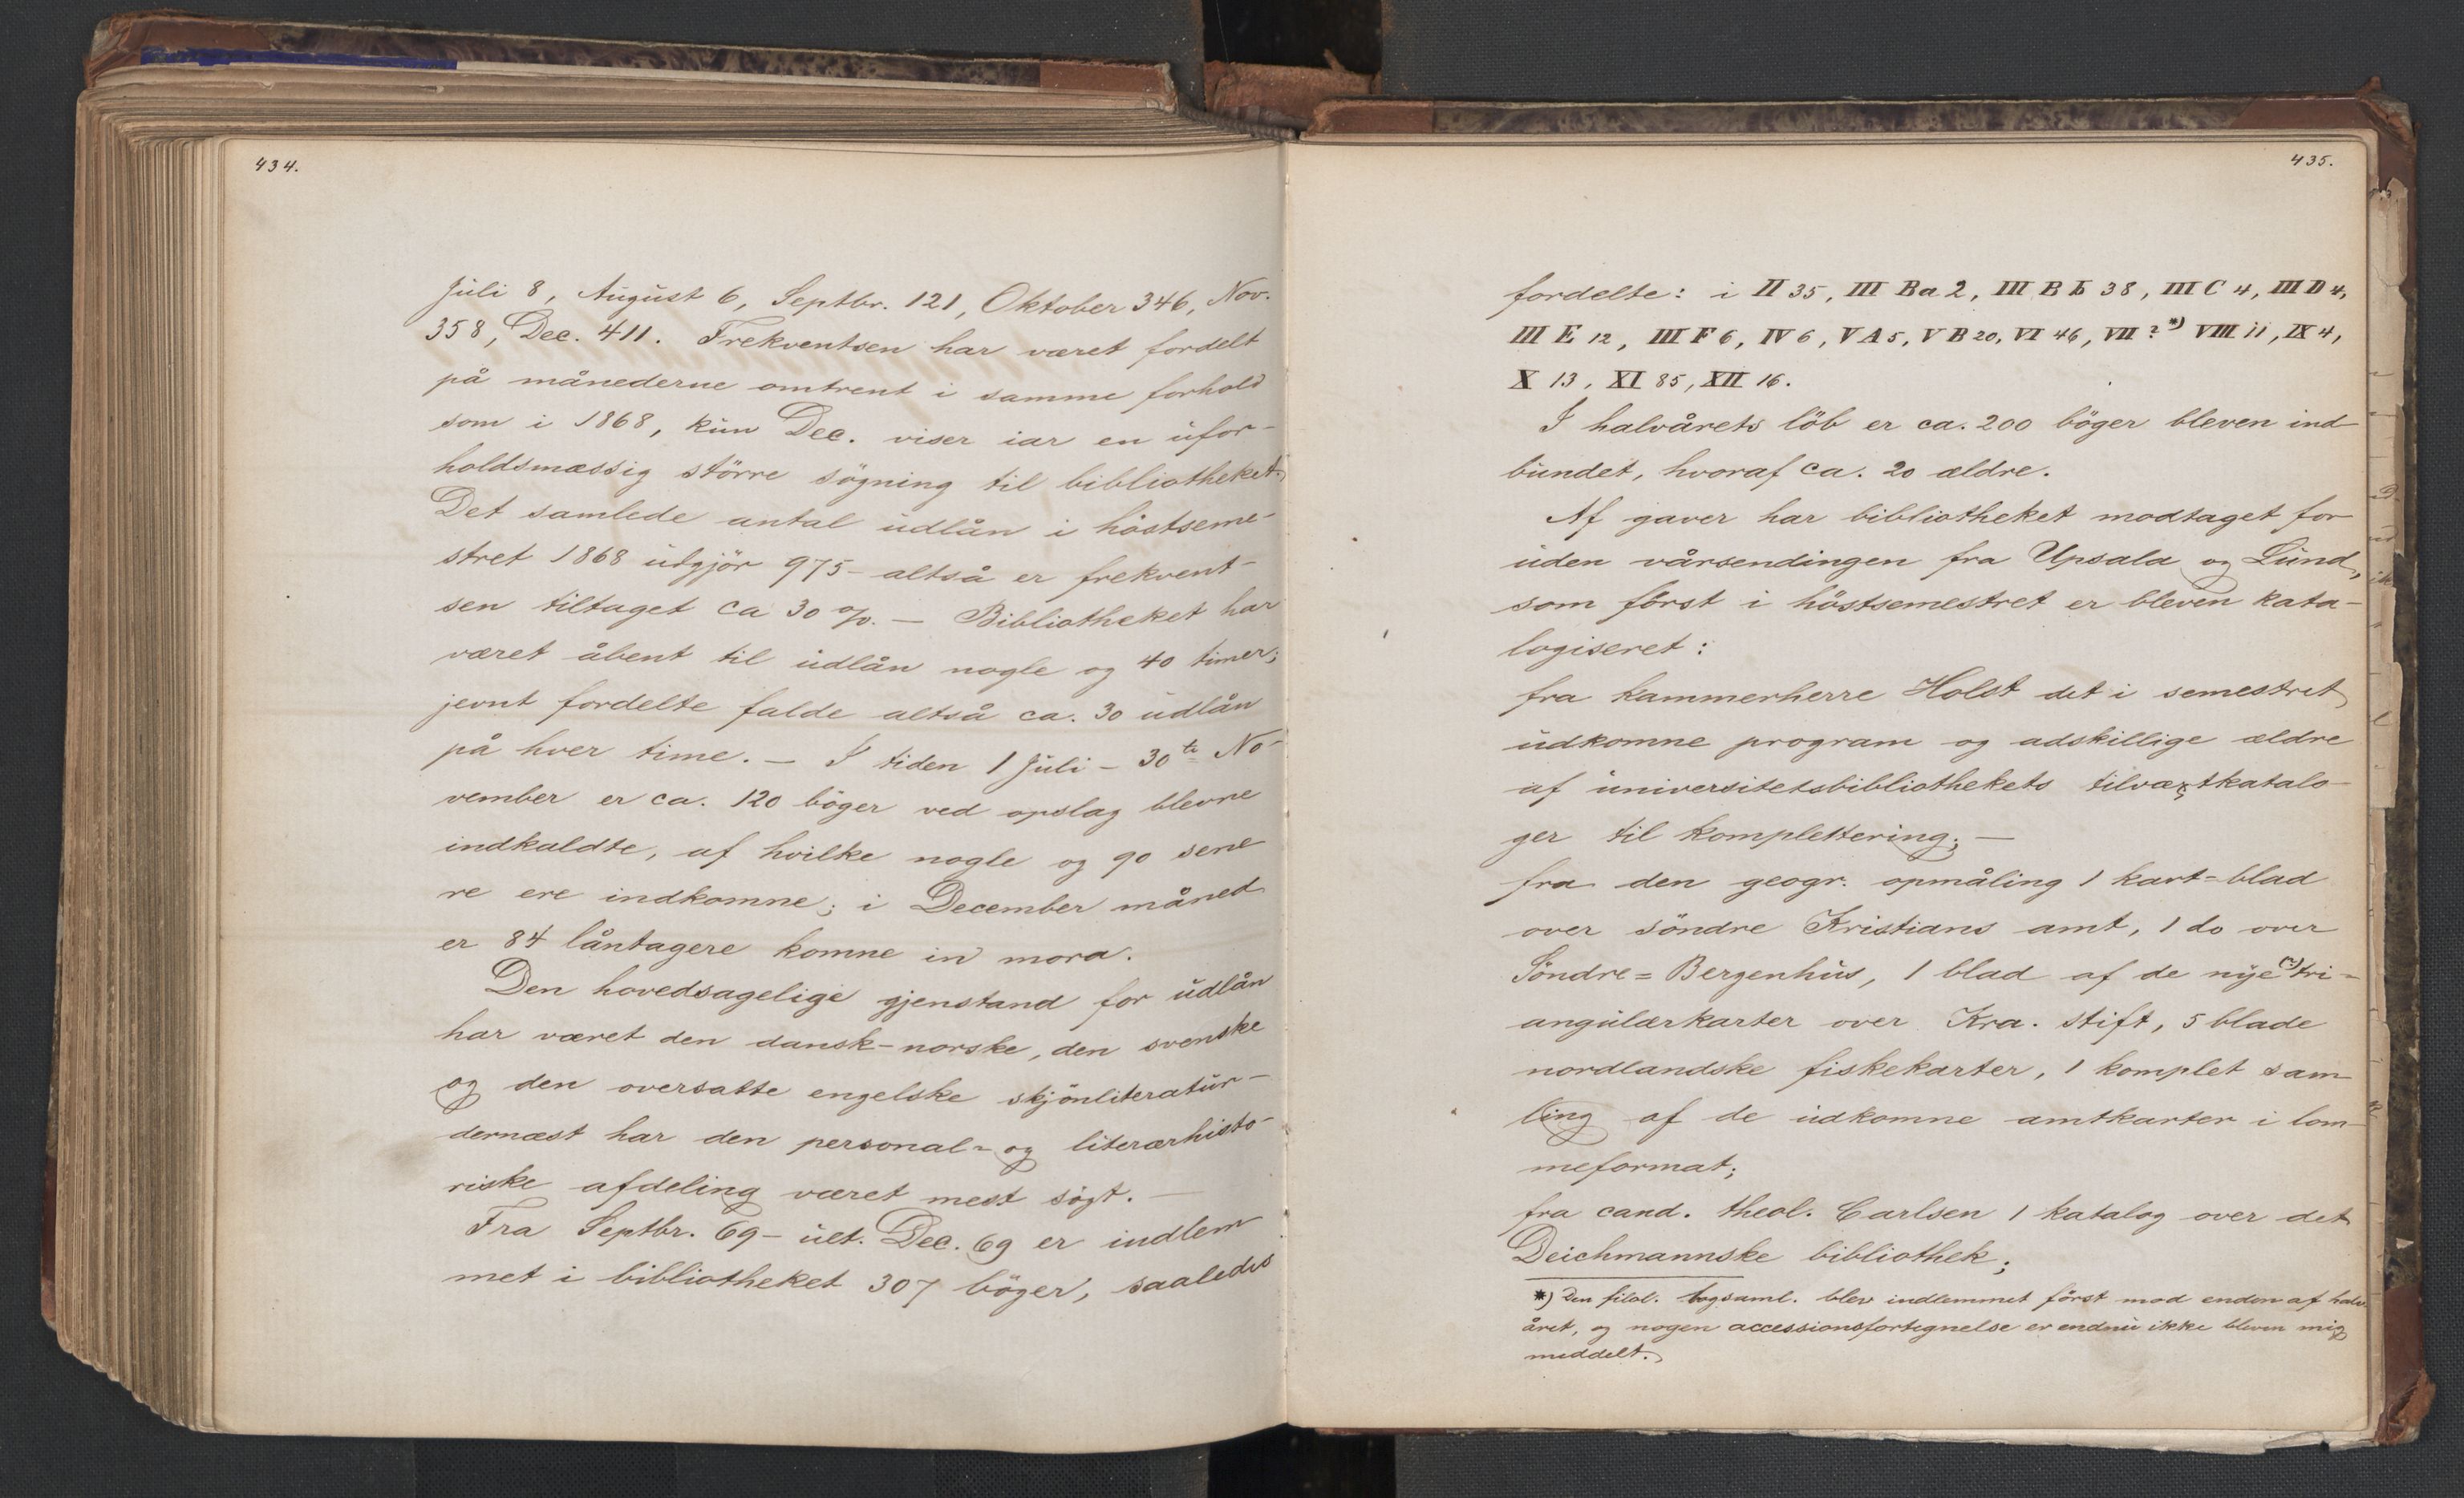 434.
Juli 8, August 6, Septbr. 121, Oktober 346, Nov.
358, Dec. 411. Frekventsen har været fordelt
på månederne omtrent i samme forhold
som i 1868, kun Dec. viser iar en ufor-
holdsmæssig större sögning til bibliotheket.
Det samlede antal udlån i höstseme-
stret 1868 udgjör 975 - altså er frekvent-
sen tiltaget ca 30 %. — Bibliotheket har
været åbent til udlån nogle og 40 timer;
jevnt fordelte falde altså ca. 30 udlån
på hver time. — I tiden 1 Juli - 30te No-
vember er ca. 120 böger ved opslag blevne
indkaldte, af hvilke nogle og 90 sene-
re ere indkomne; i December måned
er 84 låntagere komne in mora.
Den hovedsagelige gjenstand for udlån
har været den dansk-norske, den svenske
og den oversatte engelske skjönliteratur -
dernæst har den personal- og literærhisto-
riske afdeling været mest sögt. —
Fra Septbr. 69 - ult. Dec. 69 er indlem-
met i bibliotheket 307 böger, saaledes
435.
fordelte: i II 35, III Ba 2, III Bb 38, III C 4, III D 4,
III E 12, III F 6, IV 6, V A 5, V B 20, VI 46, VII ? *) VIII 11, IX 4,
X 13, XI 85, XII 16.
I halvårets löb er ca. 200 böger bleven ind-
bundet, hvoraf ca. 20 ældre.
Af gaver har bibliotheket modtaget for-
uden vårsendingen fra Upsala og Lund,
som först i höstsemestret er bleven kata-
logiseret:
fra kammerherre Holst det i semestret
udkomne program og adskillige ældre
af universitetsbibliothekets tilvæxtkatalo-
ger til komplettering; —
fra den geogr. opmåling 1 kart=blad
over söndre Kristians amt, 1 do over
Söndre=Bergenhus, 1 blad af de nye (?) tri-
angulærkarter over Kra. stift, 5 blade
nordlandske fiskekarter, 1 komplet sam-
ling af de udkomne amtkarter i lom-
meformat;
fra cand. theol. Carlsen 1 katalog over det
Deichmannske bibliothek;
*) Den filol. bogsaml. blev indlemmet först mod enden af halv-
året, og nogen accessionsfortegnelse er endnu ikke bleven mig
meddelt.